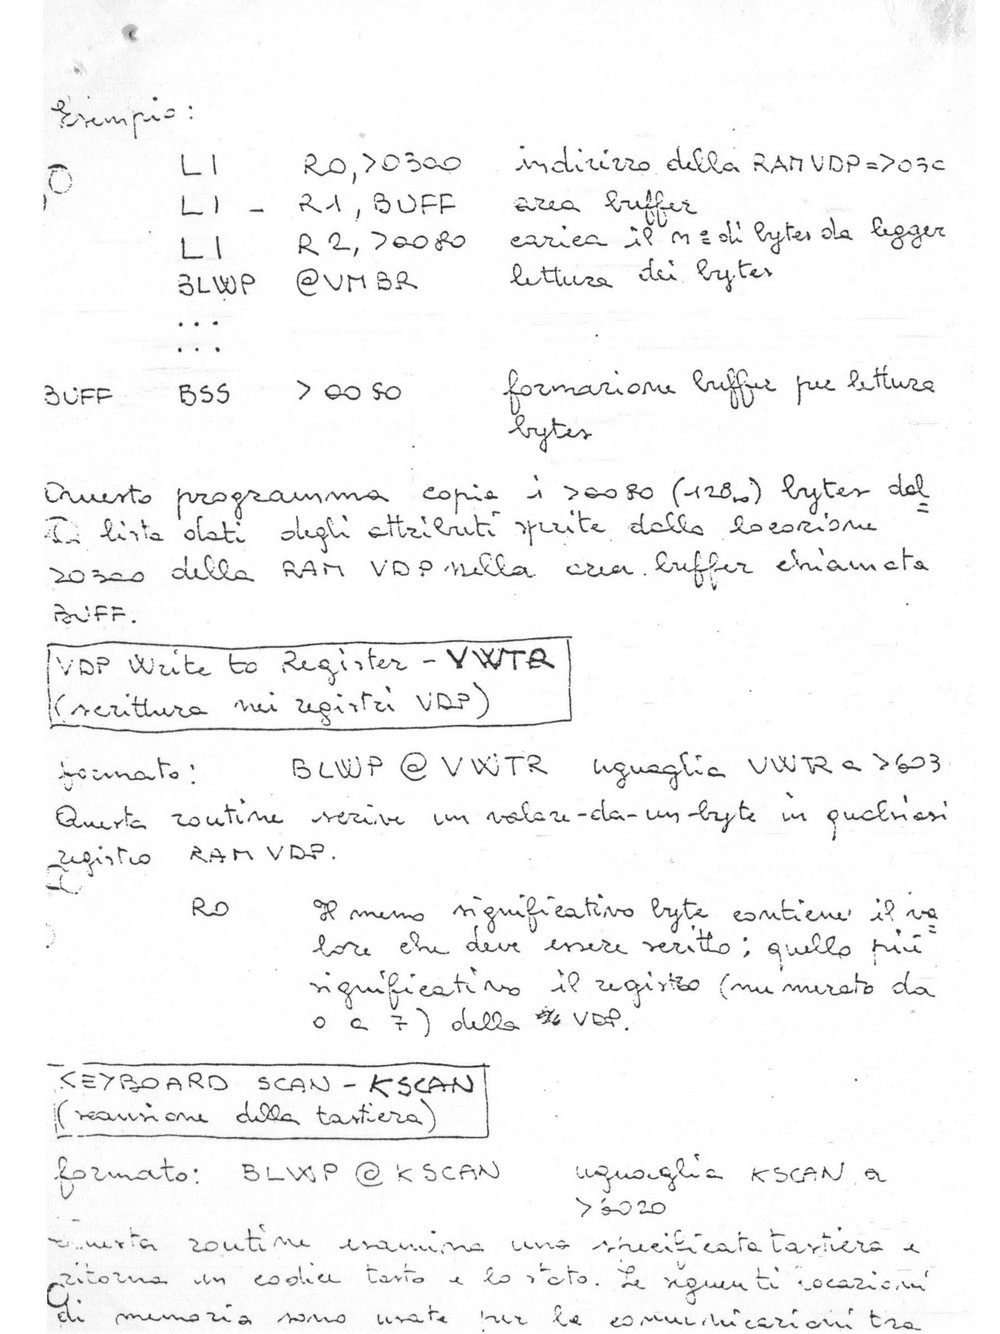 Esempio:
LI R0,>0300 indirizzo della RAM VDP=>030
LI - R1, BUFF area buffer
LI R2, >0080 carica il n= di bytes da legger
BLWP @VMBR lettura dei bytes
...
...
BUFF BSS >0080 formazione buffer per lettura
bytes
Questo programma copia i >0080 (128₁₀) bytes del
la lista dati degli attributi sprite dalla locazione
>0300 della RAM VDP nella area buffer chiamata
BUFF.
VDP Write to Register - VWTR
(scrittura nei registri VDP)
formato: BLWP @ VWTR uguaglia VWTR a >603
Questa routine scrive un valore-da-un-byte in qualsiasi
registro RAM VDP.
R0 Il meno significativo byte contiene il va
lore che deve essere scritto; quello più
significativo il registro (numerato da
0 a 7) della VDP.
KEYBOARD SCAN - KSCAN
(scansione della tastiera)
formato: BLWP @ KSCAN uguaglia KSCAN a
>6020
Questa routine esamina una specificata tastiera e
ritorna un codice tasto e lo stato. Le seguenti locazioni
di memoria sono usate per le comunicazioni tra